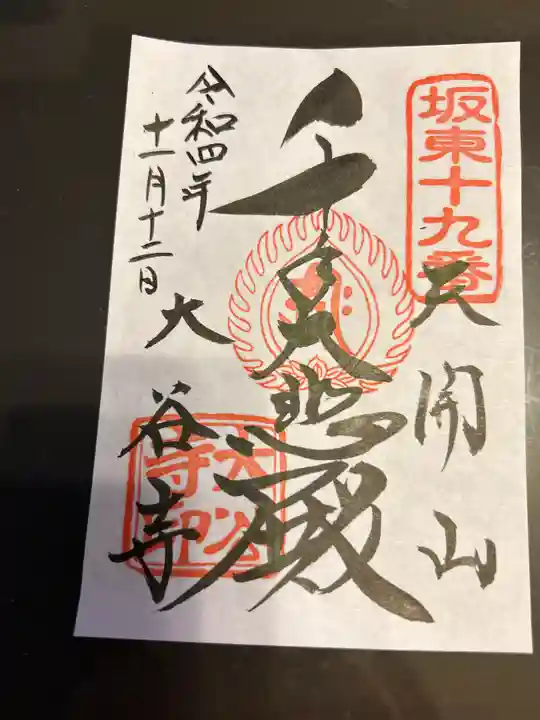 坂東十九番
天開山
千手大悲殿
大谷寺
大谷寺印
令和四年
十一月十二日